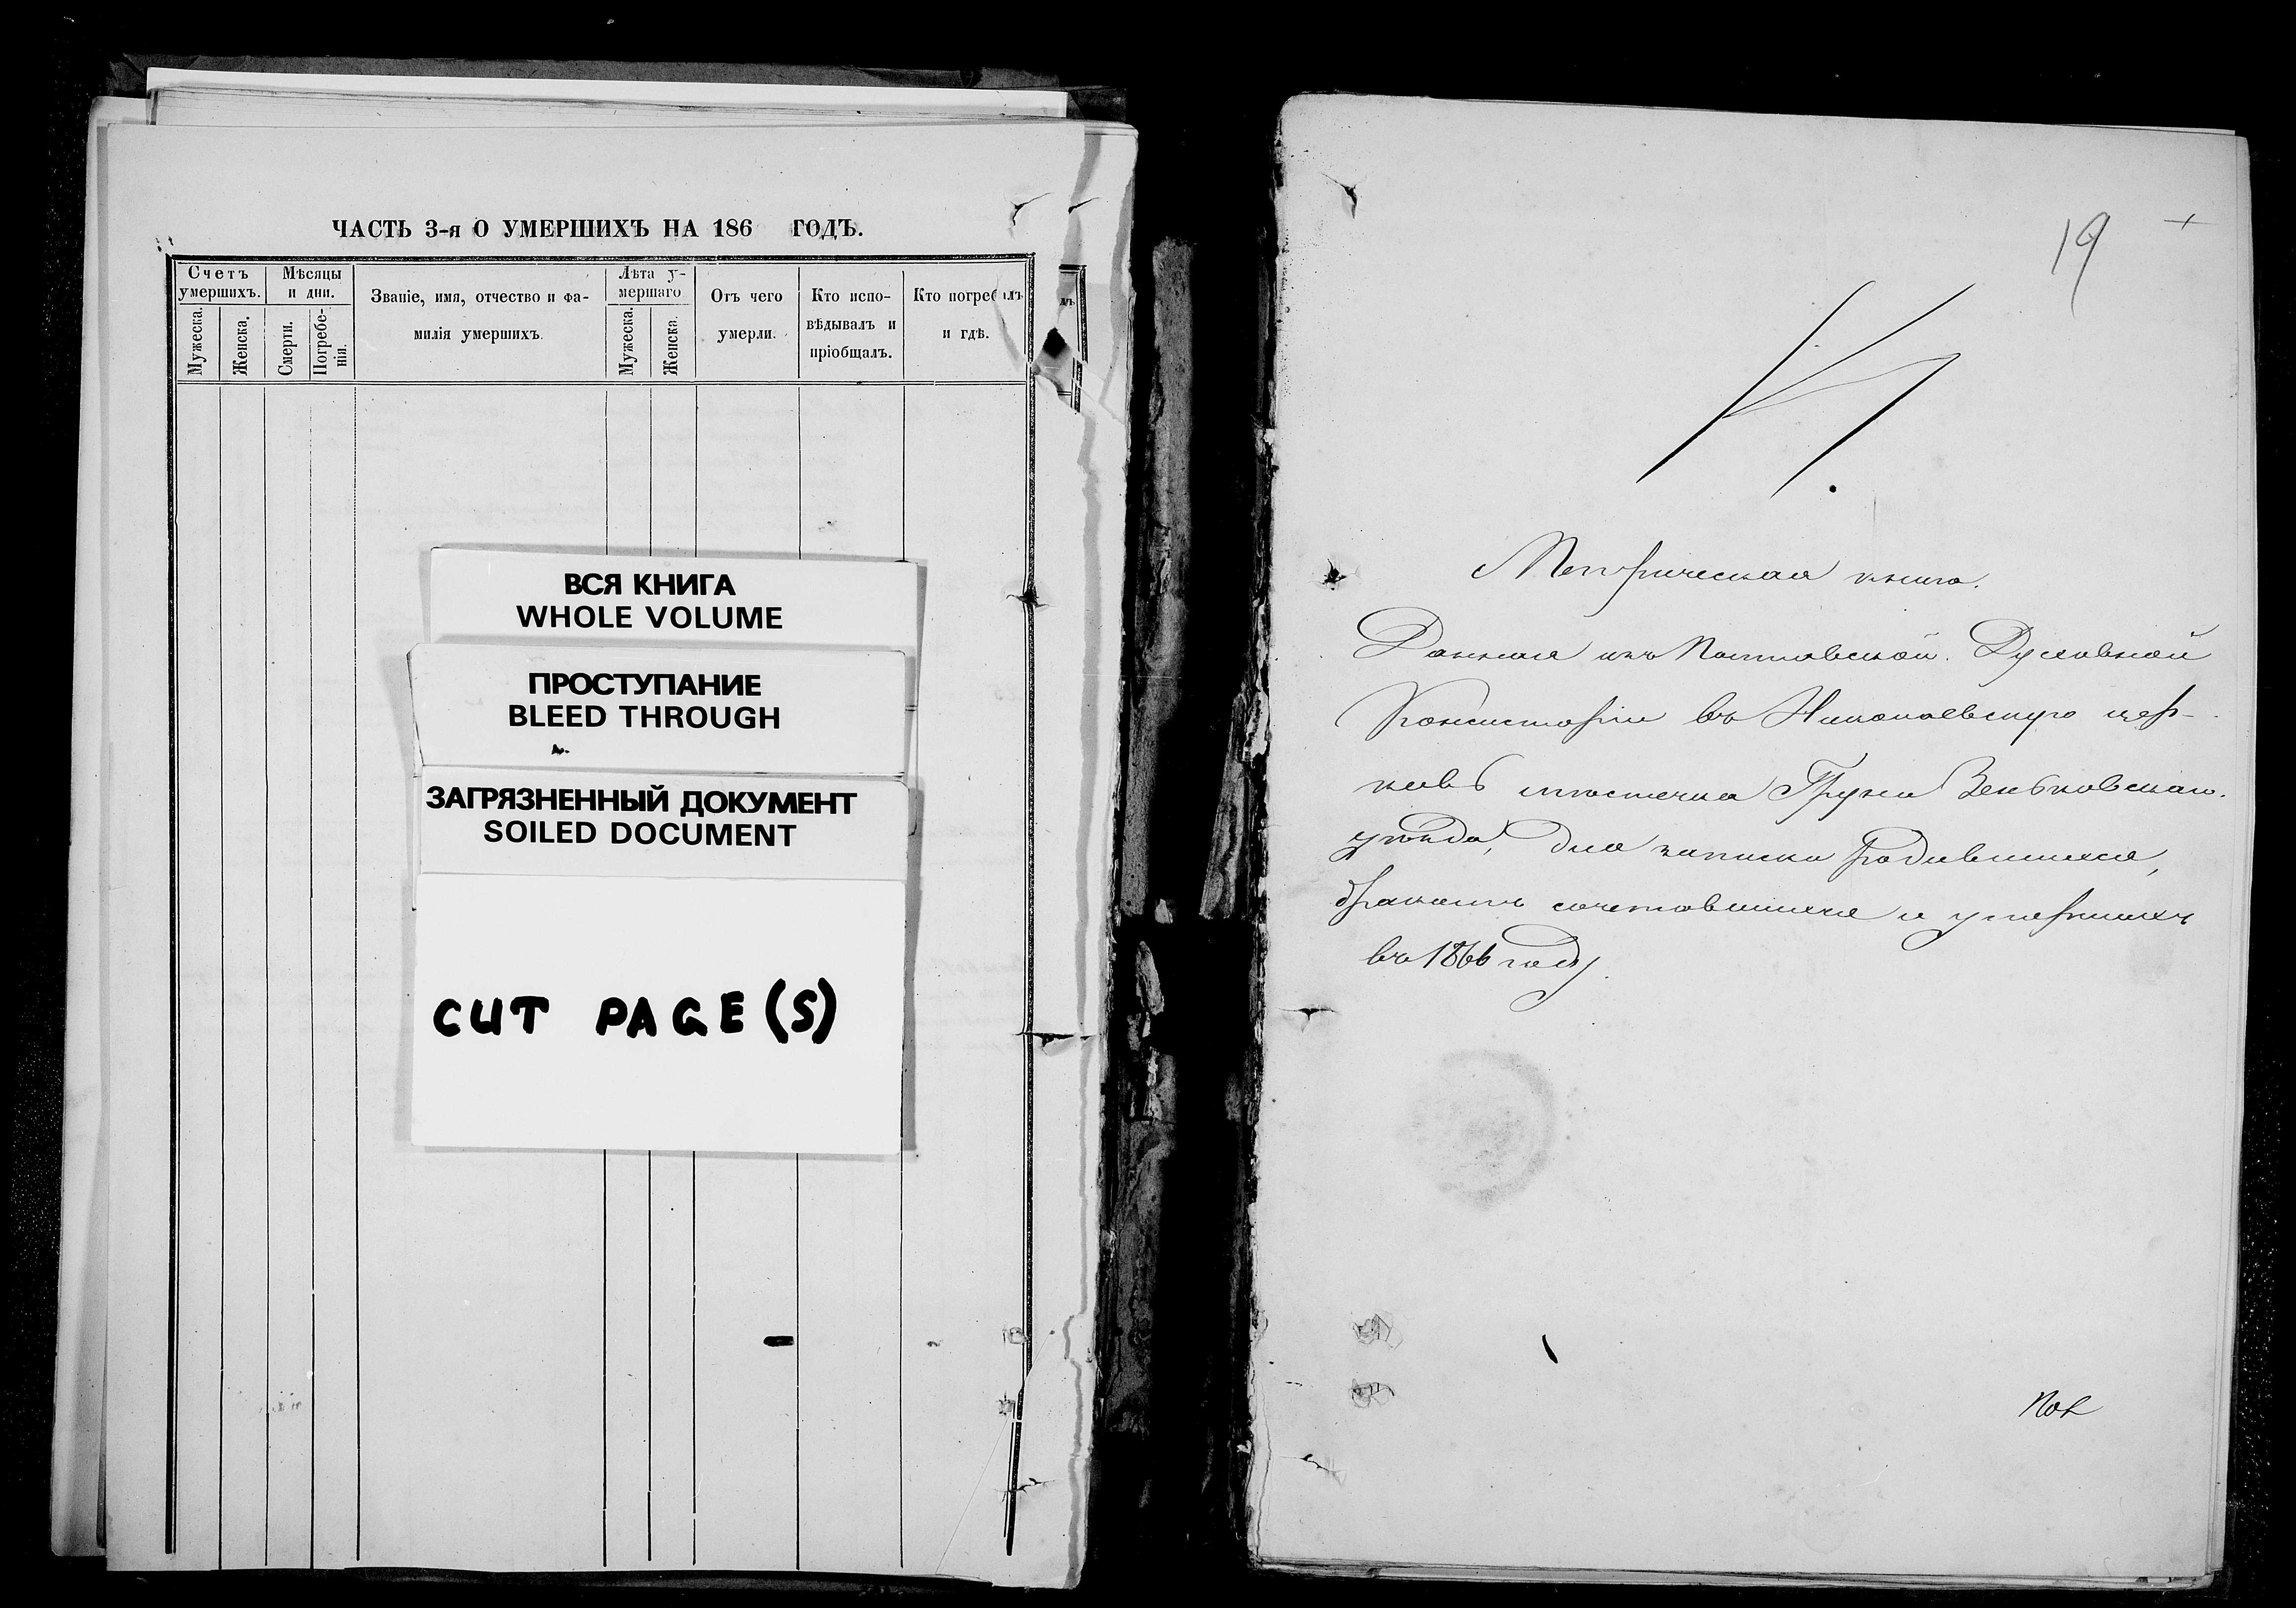 ЧАСТЬ 3-я О УМЕРШИХЪ НА 186 ГОДЪ.
Счетъ умершихъ.
Мужеска.
Женска.
Мѣсяцы и дни.
Смерти.
Погребенія.
Званіе, имя, отчество и фа-
милія умершихъ.
Лѣта у-
мершаго
Мужеска.
Женска.
Отъ чего
умерли.
Кто испо-
вѣдывалъ и
пріобщалъ.
Кто погребалъ
и гдѣ.
ВСЯ КНИГА
WHOLE VOLUME
ПРОСТУПАНИЕ
BLEED THROUGH
ЗАГРЯЗНЕННЫЙ ДОКУМЕНТ
SOILED DOCUMENT
CUT PAGE(S)
19
Метрическая книга.
Данная изъ Полтавской Духовной
Консисторіи въ Николаевскую цер-
ковь местечка Груни Зеньковскаго
уѣзда, для записки родившихся,
бракомъ сочетавшихся и умершихъ
въ 1866 году.